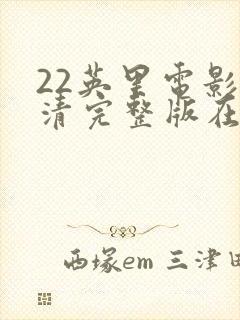 22英里电影
清完整版在
西塚em 三津田